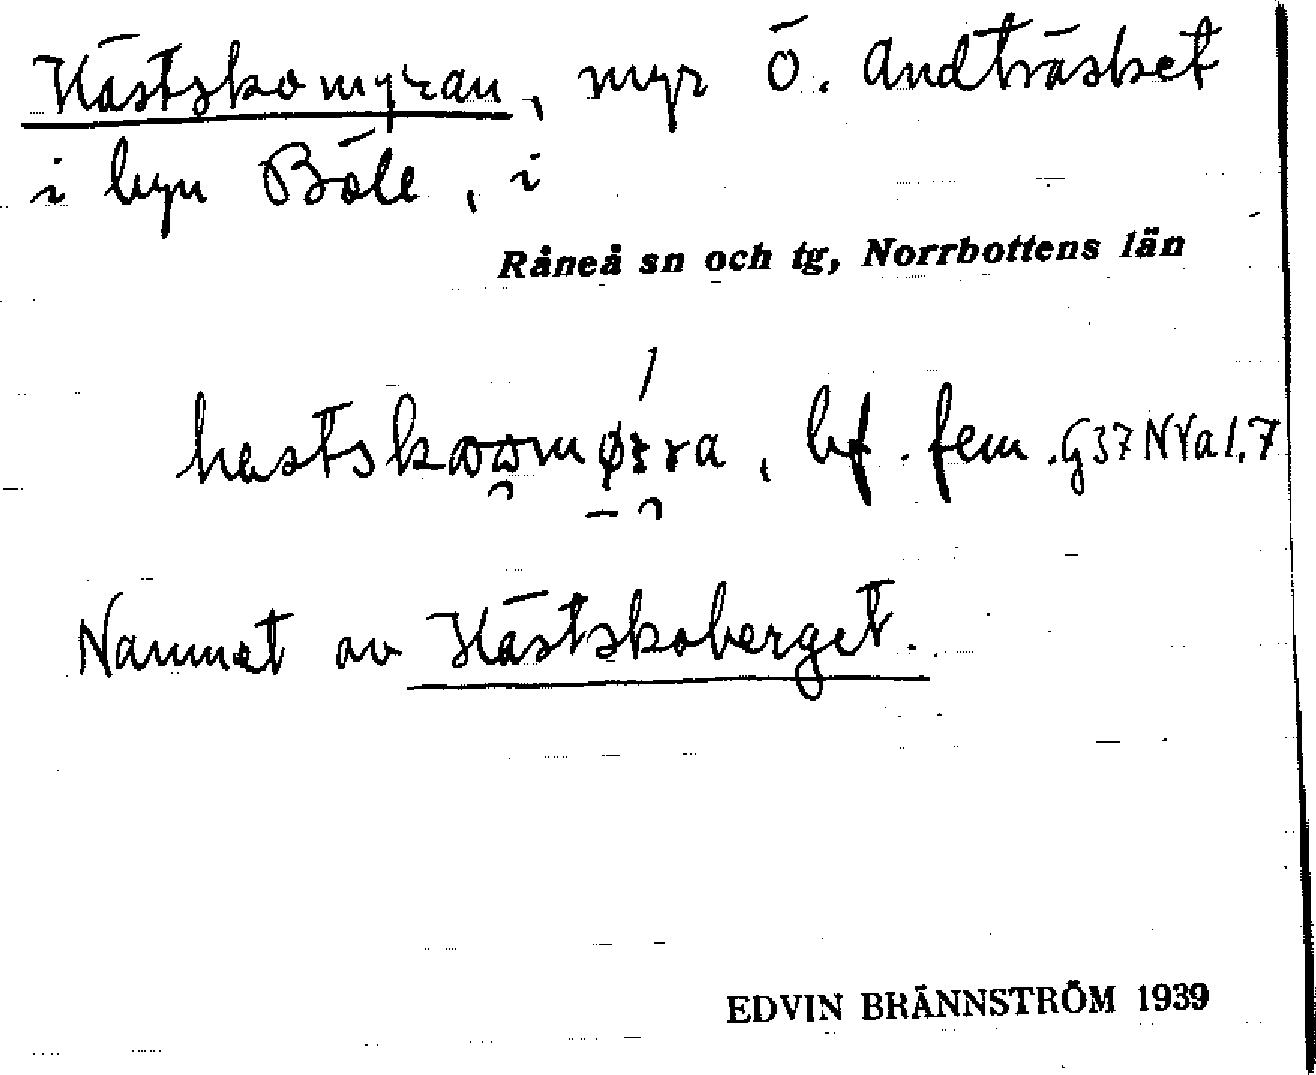 Hästskomyran, myr Ö. Andträsket
i byn Böle, i
Råneå sn och tg, Norrbottens län
bf. fem. G37 NVa1,7
Namnet av Hästskoberget.
EDVIN BRÄNNSTRÖM 1939